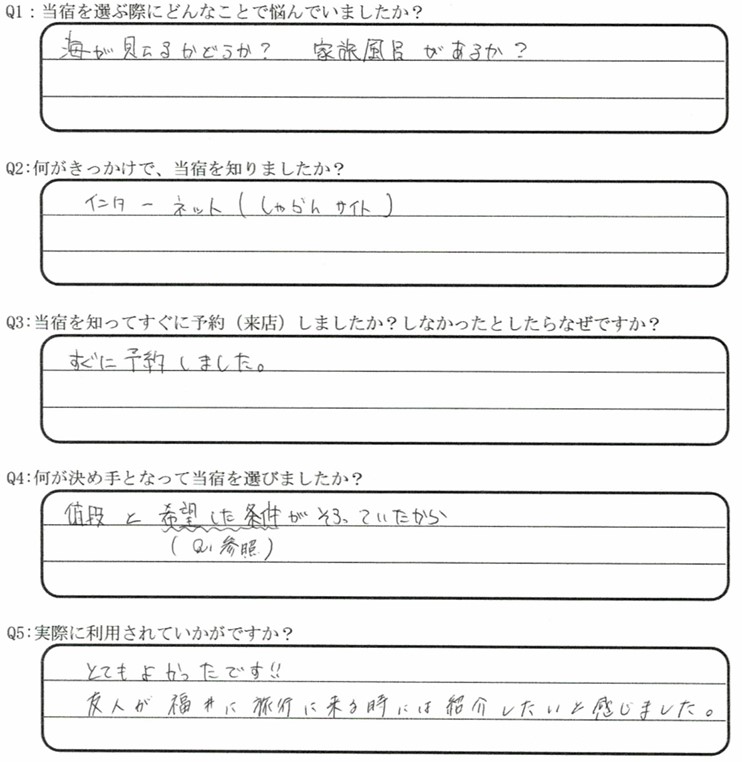 Q1：当宿を選ぶ際にどんなことで悩んでいましたか？
海が見えるかどうか？　家族風呂があるか？
Q2：何がきっかけで、当宿を知りましたか？
インターネット（じゃらんサイト）
Q3：当宿を知ってすぐに予約（来店）しましたか？しなかったとしたらなぜですか？
すぐに予約しました。
Q4：何が決め手となって当宿を選びましたか？
値段と希望した条件がそろっていたから
（Q1参照）
Q5：実際に利用されていかがですか？
とてもよかったです!!
友人が福井に旅行に来る時には紹介したいと感じました。